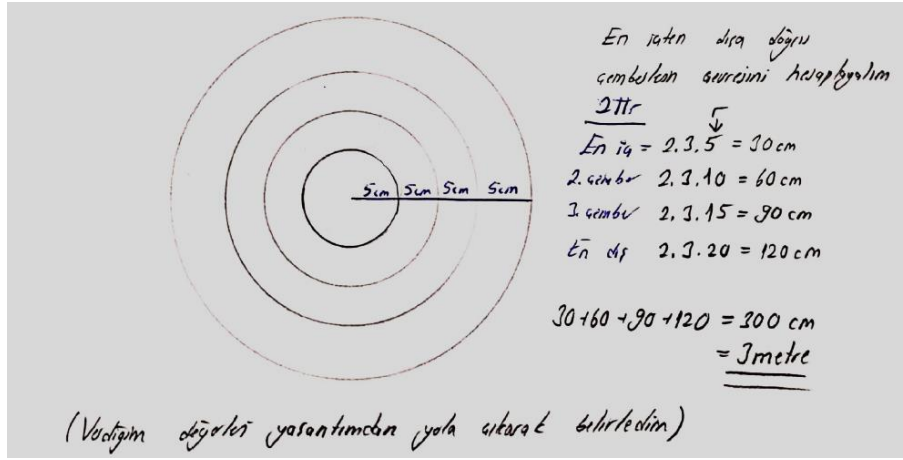 En içten dışa doğru
çemberlerin çevresini hesaplayalım
2πr
r
En iç = 2.3.5 = 30 cm
2. çember 2.3.10 = 60 cm
3. çember 2.3.15 = 90 cm
En dış 2.3.20 = 120 cm
5cm 5cm 5cm 5cm
30+60+90+120 = 300 cm
= 3 metre
(Verdiğim değerleri yaşantımdan yola çıkarak belirledim)